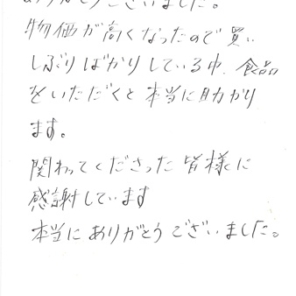 ありがとうございました。
物価が高くなったので買い
しぶりばかりしている中、食品
をいただくと本当に助かり
ます。
関わってくださった皆様に
感謝しています
本当にありがとうございました。